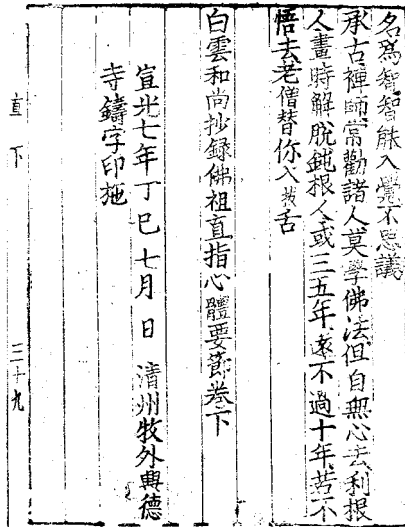 名爲智智能入覺不思議
承古禪師常勸諸人莫學佛法但自無心去利根
人晝時解脫鈍根人或三五年遠不過十年若不
悟去老僧替你入拔舌
白雲和尚抄錄佛祖直指心體要節卷下
宣光七年丁巳七月 日 淸州牧外興德
寺鑄字印施
直下
三十九